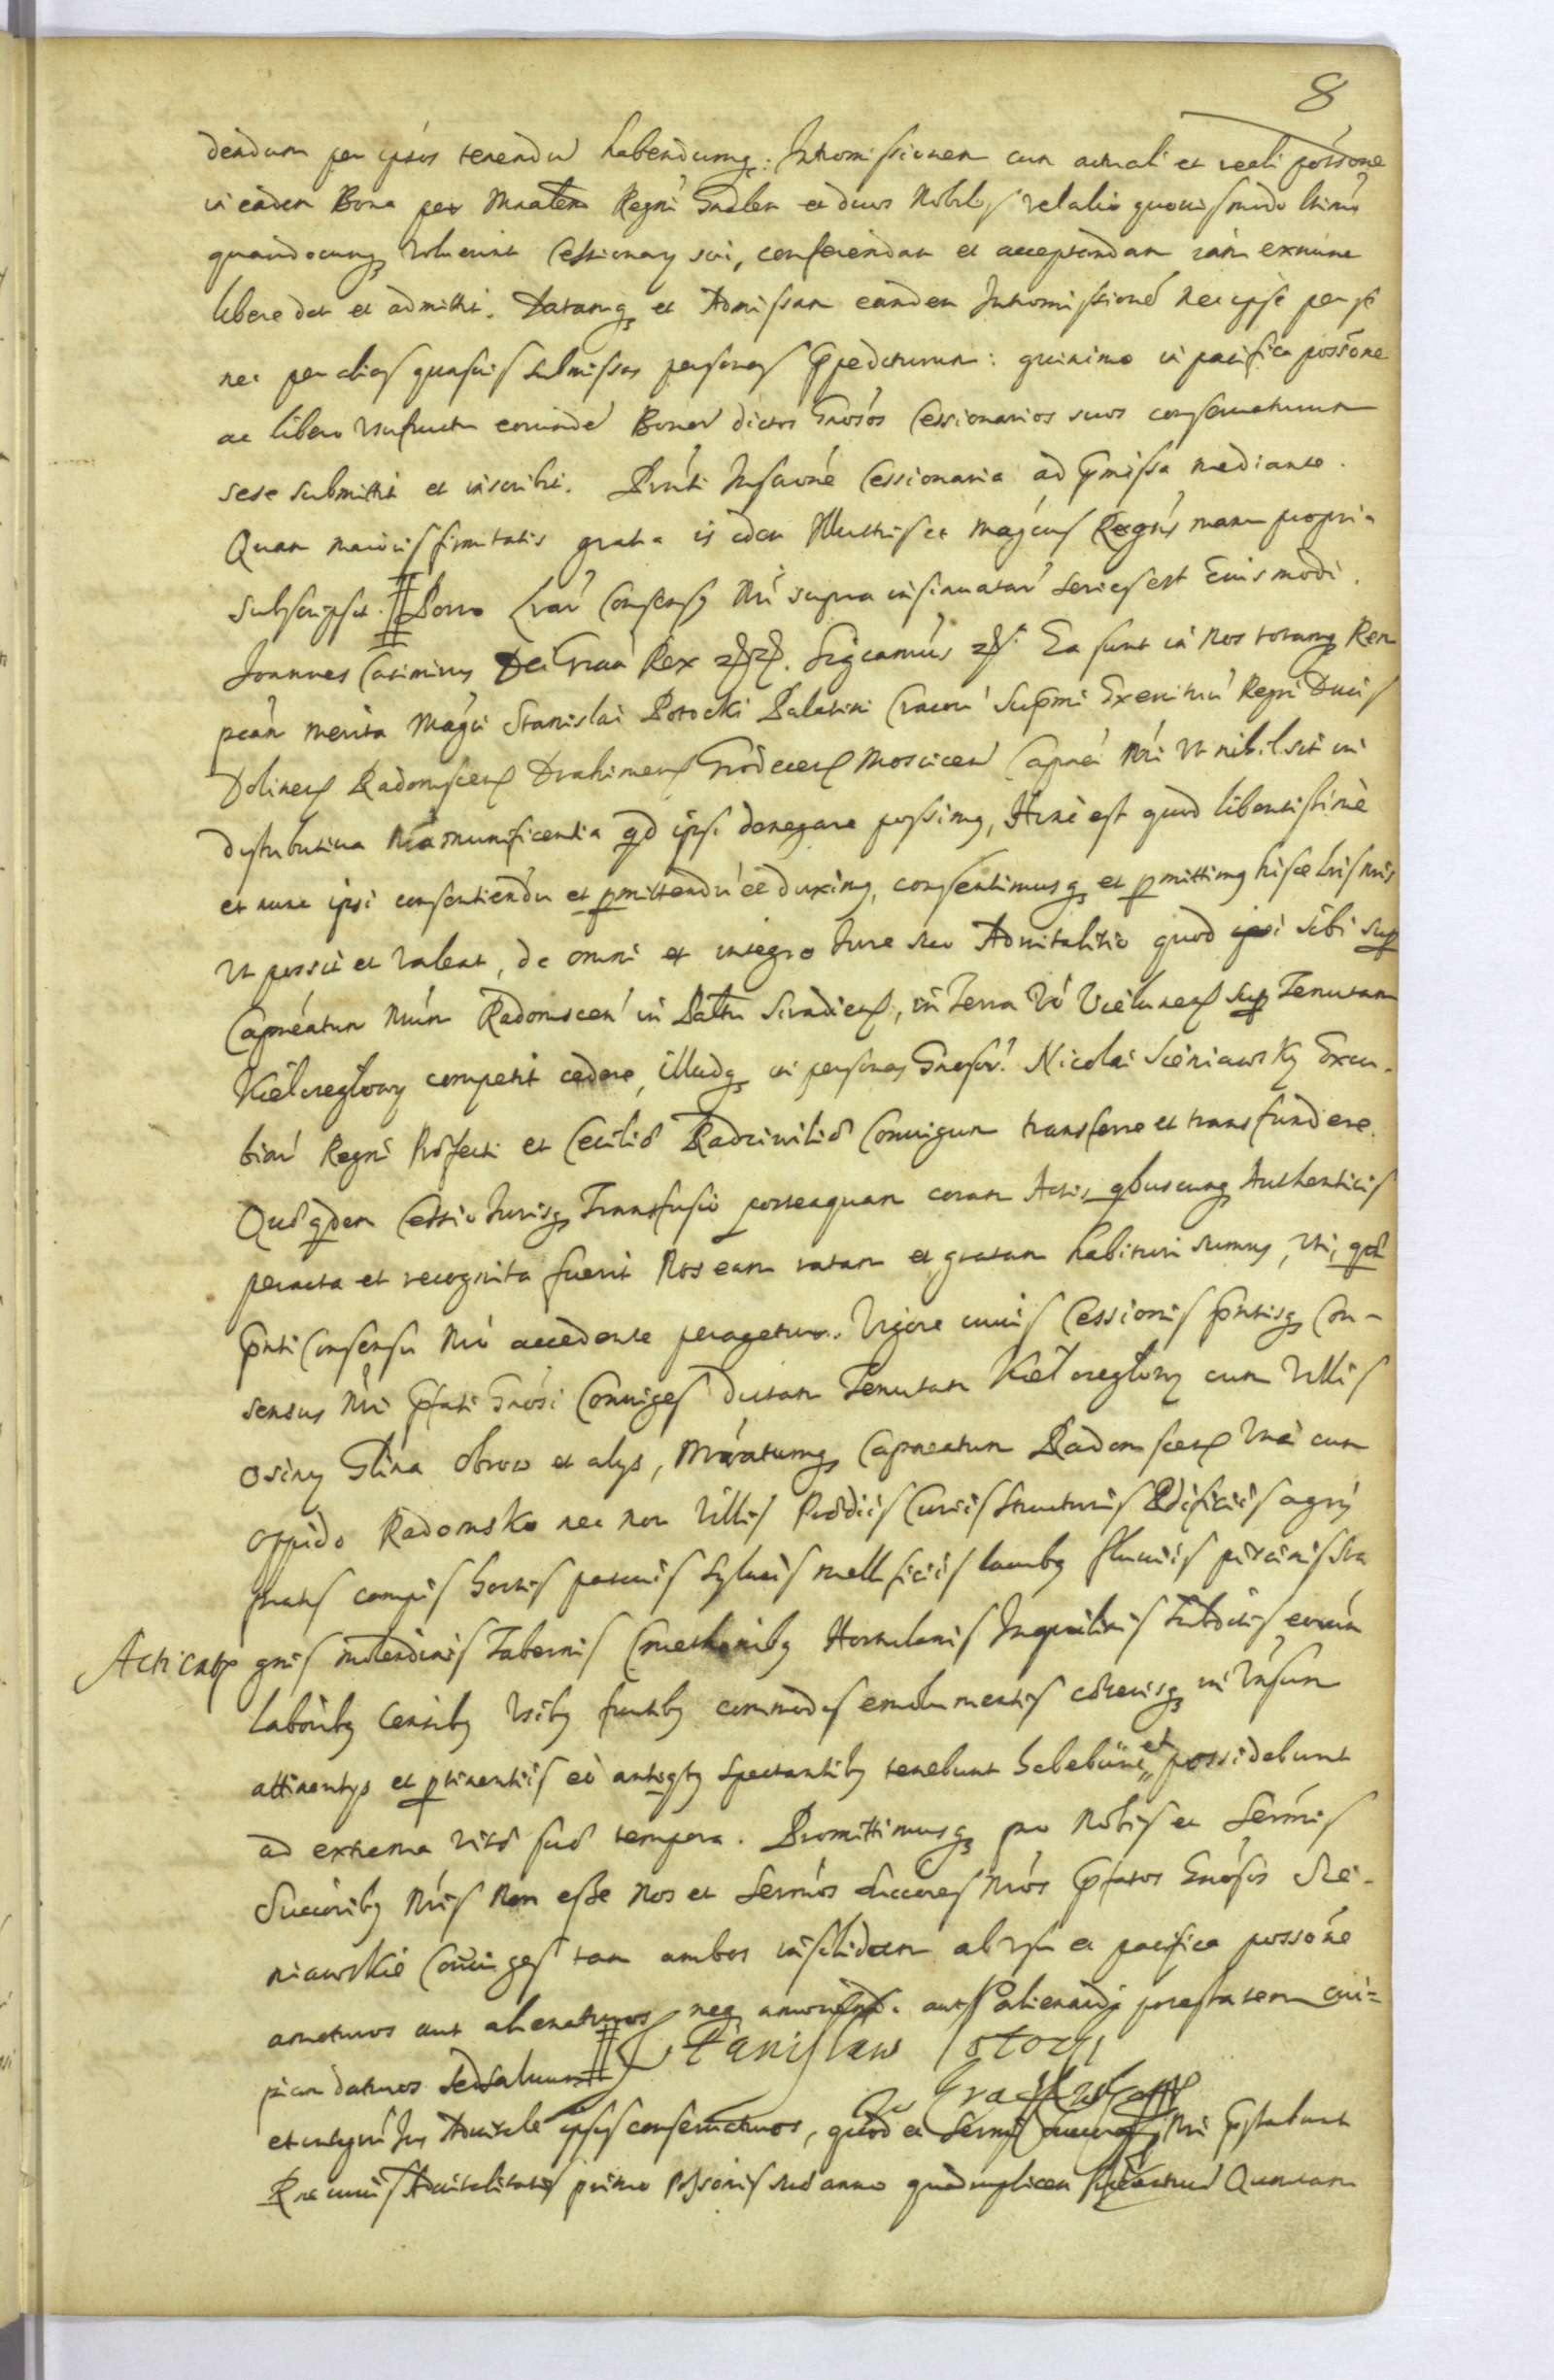 8
dendam per ipsos tenendū habendumq₃: Intromissionem cum actuali et reali possōne
in eadem Bona per Mnrlem Regni Gnalem et duos Nobiles relatio quouismodo
quandocunq₃ voluerint Cessionary sui, conferendam et acceptandam iam exnunc
libere dat et admittit. Datamq₃ et Admissam eandem Intromissionē nec ipse per se
nec per alias quasuis submissas personas impediturum: quinimo in pacifica possōne
ac libero vsufructu eorundē Bonor dictos Gnosos Cessionarios suos conseruaturum
sese submittit et inscribit. Pnti Inscrōne Cessionaria ad pmissa mediante.
Quam maioris firmitatis gratia is idem Illustris et Magcus Recogns manu propria
subscripsit. Porro Lrar Consensus Nri supra insinuatar series est Eiusmodi.
Joannes Casimirus Dei Graa Rex. Sigcamus. Ea sunt in Nos totamq₃ Rem
pcam merita Magci Stanislai Potocki Palatini Cracou Supmi Exercituu Regni Ducis
Dolinen Radomscen Drahimen Grodecen Moscicen Capnei Nri Vt nihil sit in
distributiua Nra munificentia qd ipsi denegare possimus, Hinc est quod libentissimè
et nunc ipsi consentiendū et pmittendū ee duximus, consentimusq₃ et pmittimus hisce lris nris
Vt possit et valeat, de omni et integro Iure suo Aduitalitio quod ipsi sibi sup
Capneatum Nrum Radomscen in Pattu Siradien, in Terra Vo Vielunen sup Tenutam
Kiełczegłowy competit cedere, illudq₃ in personas Gnosor. Nicolai Sieniawsky Excu-
biar Regni Prefecti et Cecilie Radziwilie Coniugum transferre et transfundere.
Que qdem Cessio Iurisq₃ Transfusio posteaquam coram Actis qbuscunq₃ Authenticis
peracta et recognita fuerit Nos eam ratam et gratam habituri sumus, Vti, qd
pnti Consensu Nro accedente peragetur. Vigore cuius Cessionis pntisq₃ Con-
sensus Nri pfati Gnosi Coniuges dictam Tenutam Kiełczegłowy cum Villis
Osiny Glina Obrow et alys, Mratumq₃ Capneatum Radomscen Vna cum
oppido Radomsko nec non Villis Predis Curiis Structuris Edificiis agris
pratis campis hortis pascuis syluis mellificiis lacubus fluuiis piscinis sta
Acticatp gnis molendinis Tabernis Cmethonibus Hortulanis Inquilinis Subditis eorum
laboribus Censibus Vsibus fructibus commodis emolumentis ceterisq₃ in Vnsum
attinentys et ptinentiis eo antiqtus spectantibus tenebunt habebunt et possidebunt
ad extrema vite sue tempora. Promittimusq₃ pro Nobis et Sermis
Succoribus Nris Non esse Nos et Sermos Succores Nros pfatos Gnosos Sie-
niawskie Coniuges tam ambos insolidum ab vsu et pacifica possone
amoturos aut alienaturos neq₃ amouendi aut alienandi potestatem cui-
piam daturos sed saluum Stanislaw Potocki
et integrū Ius Aduitale ipsis conseruaturos, quod et Sermi Succores Nri pstabunt
Ratione cuius Aduitalitatis primo possōnis sue anno quadruplicem Quartam